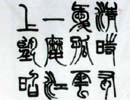 清時有
愛孤雲
一麾江
上望昭